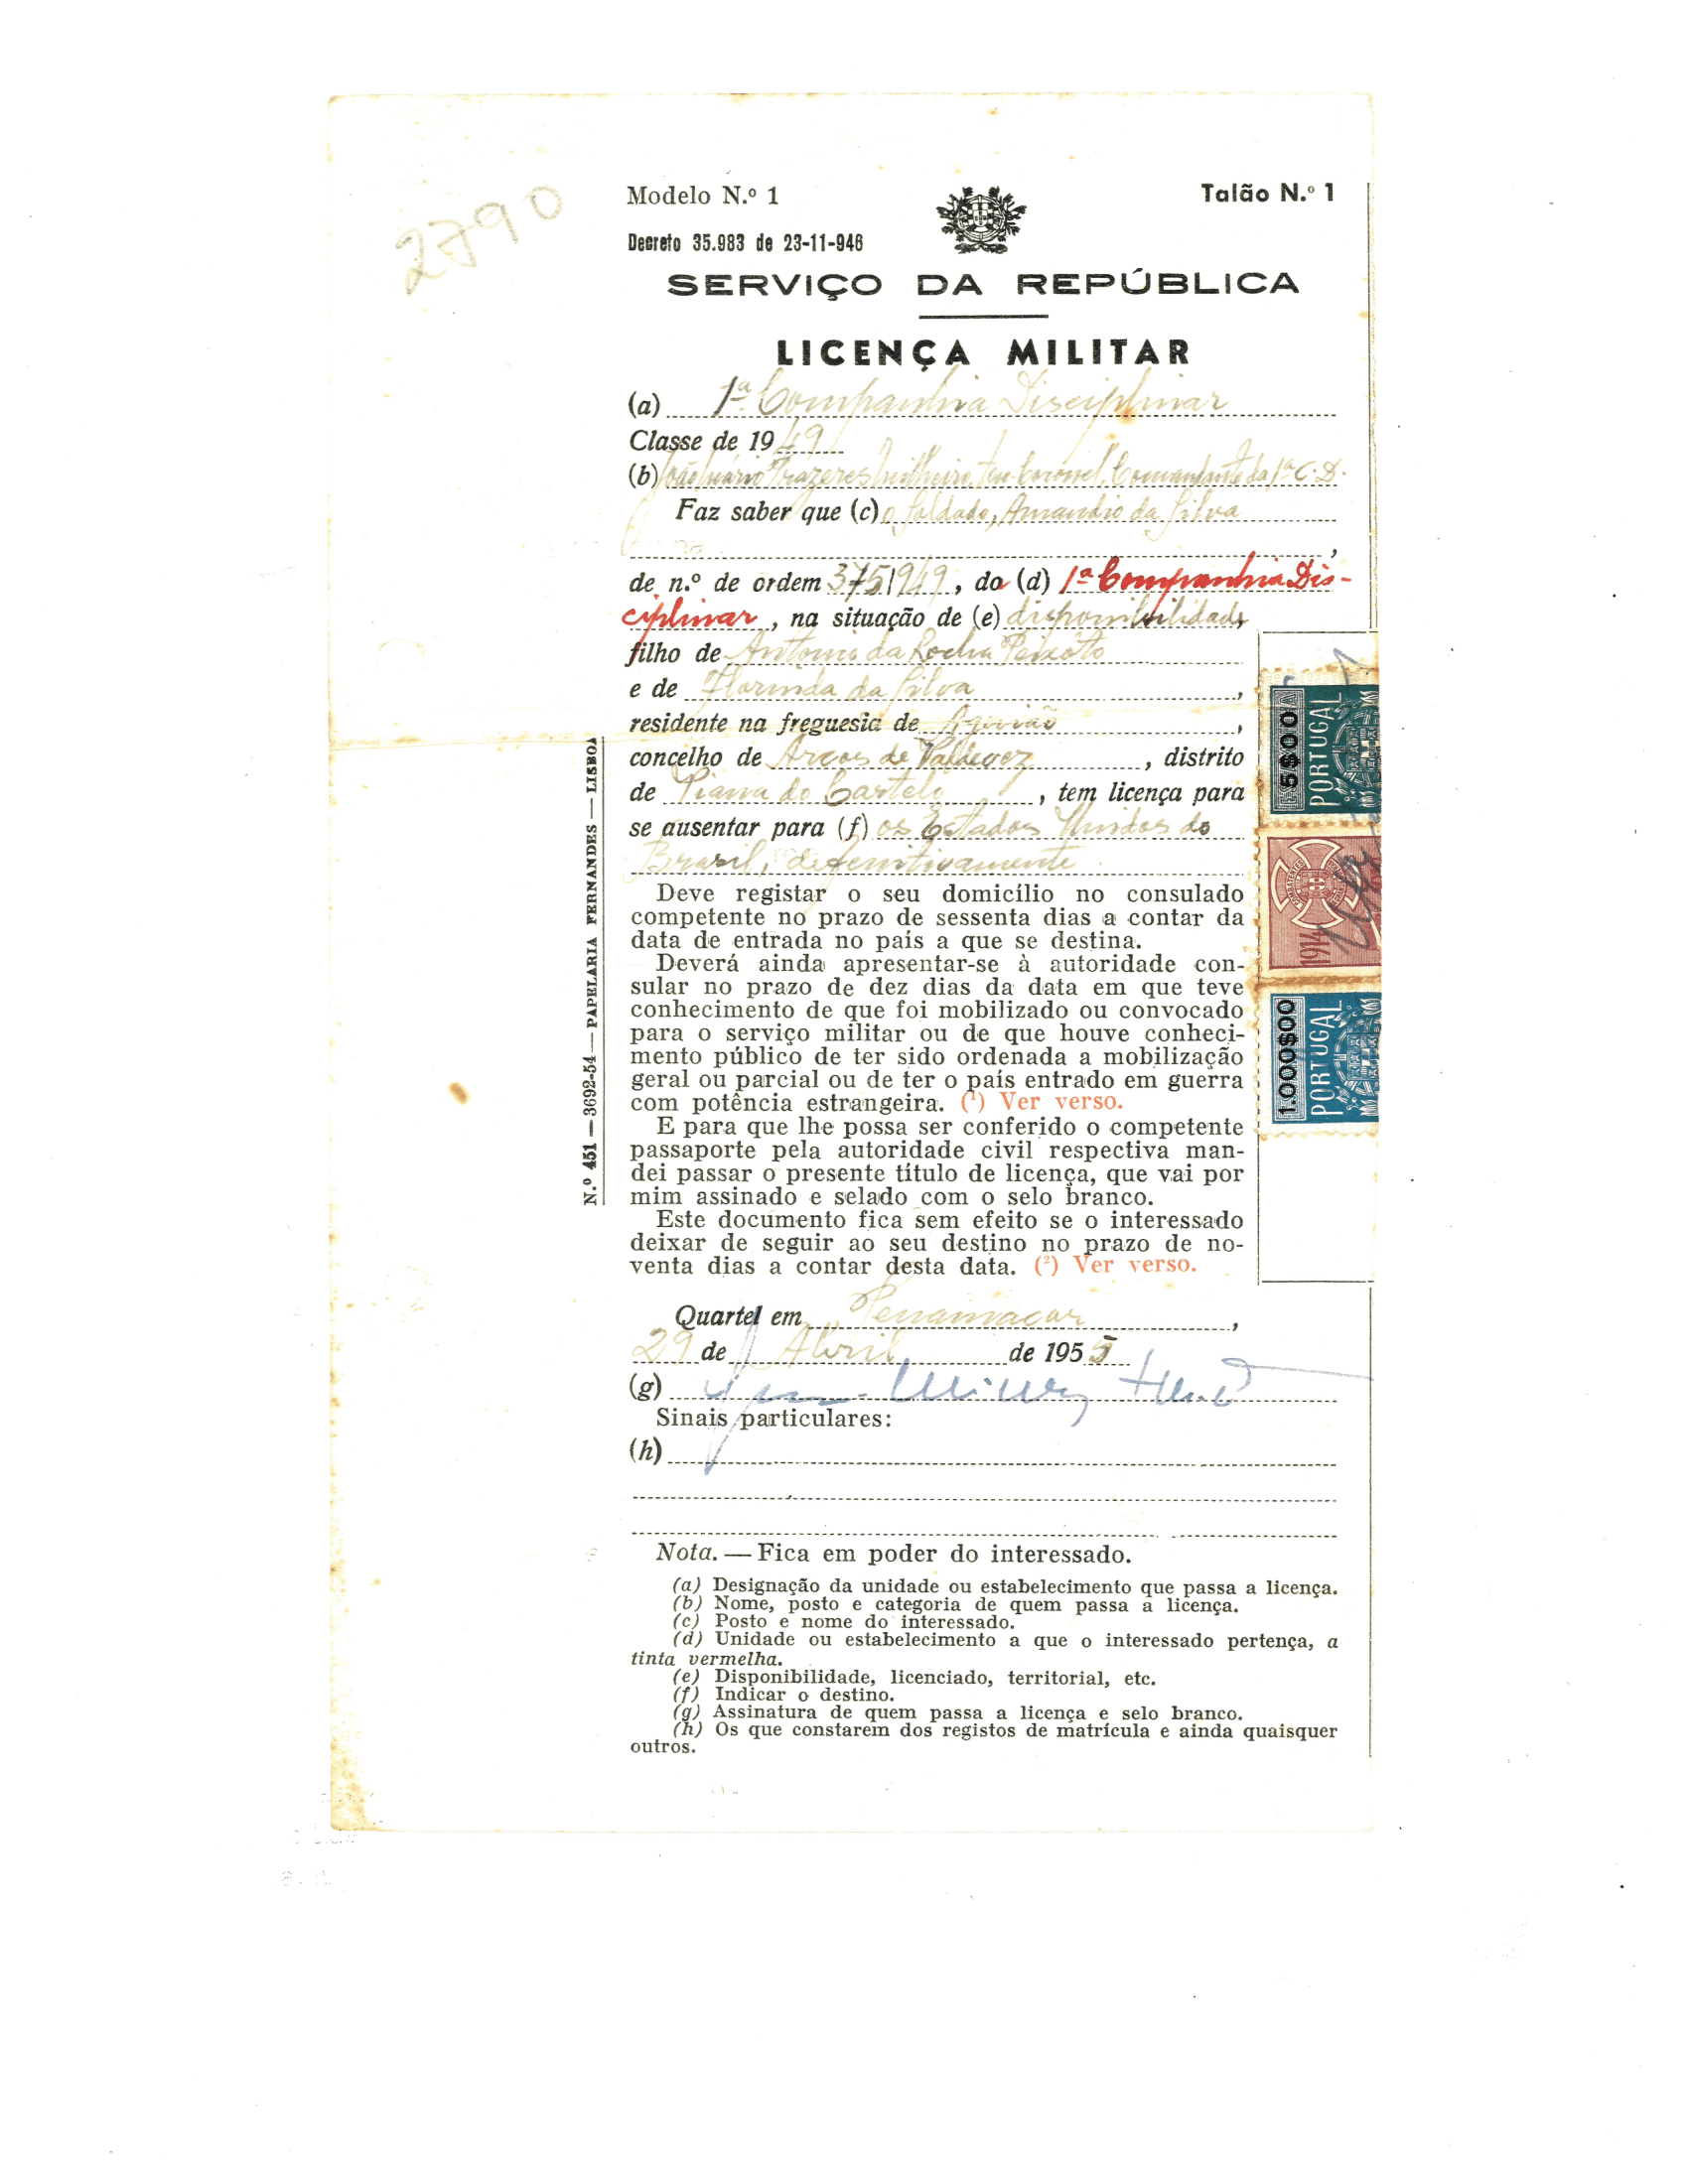 2790
Modelo N.º 1
Talão N.º 1
Decreto 35.983 de 23-11-946
SERVIÇO DA REPÚBLICA
LICENÇA MILITAR
(a) 1ª Companhia Disciplinar
Classe de 1949
(b) João Mário Prazeres Milheiro, ten. Coronel, Comandante da 1ª C. D.
Faz saber que (c) o Soldado, Amandio da Silva
,
de n.º de ordem 375/949, da (d) 1ª Companhia Dis-
ciplinar, na situação de (e) disponibilidade
filho de Antonio da Rocha Peixôto
e de Florinda da Silva,
residente na freguesia de Aguiã,
concelho de Arcos de Valdevez, distrito
de Viana do Castelo, tem licença para
se ausentar para (f) os Estados Unidos do
Brasil, defenitivamente.
Deve registar o seu domicílio no consulado
competente no prazo de sessenta dias a contar da
data de entrada no país a que se destina.
Deverá ainda apresentar-se à autoridade con-
sular no prazo de dez dias da data em que teve
conhecimento de que foi mobilizado ou convocado
para o serviço militar ou de que houve conheci-
mento público de ter sido ordenada a mobilização
geral ou parcial ou de ter o país entrado em guerra
com potência estrangeira. (¹) Ver verso.
E para que lhe possa ser conferido o competente
passaporte pela autoridade civil respectiva man-
dei passar o presente título de licença, que vai por
mim assinado e selado com o selo branco.
Este documento fica sem efeito se o interessado
deixar de seguir ao seu destino no prazo de no-
venta dias a contar desta data. (²) Ver verso.
Quartel em Penamacor,
29 de Abril de 1955
(g)
Sinais particulares:
(h)
Nota. — Fica em poder do interessado.
(a) Designação da unidade ou estabelecimento que passa a licença.
(b) Nome, posto e categoria de quem passa a licença.
(c) Posto e nome do interessado.
(d) Unidade ou estabelecimento a que o interessado pertença, a
tinta vermelha.
(e) Disponibilidade, licenciado, territorial, etc.
(f) Indicar o destino.
(g) Assinatura de quem passa a licença e selo branco.
(h) Os que constarem dos registos de matrícula e ainda quaisquer
outros.
N.º 451 — 3692-54 — PAPELARIA FERNANDES — LISBOA
5$00
PORTUGAL
1914
1.000$00
PORTUGAL